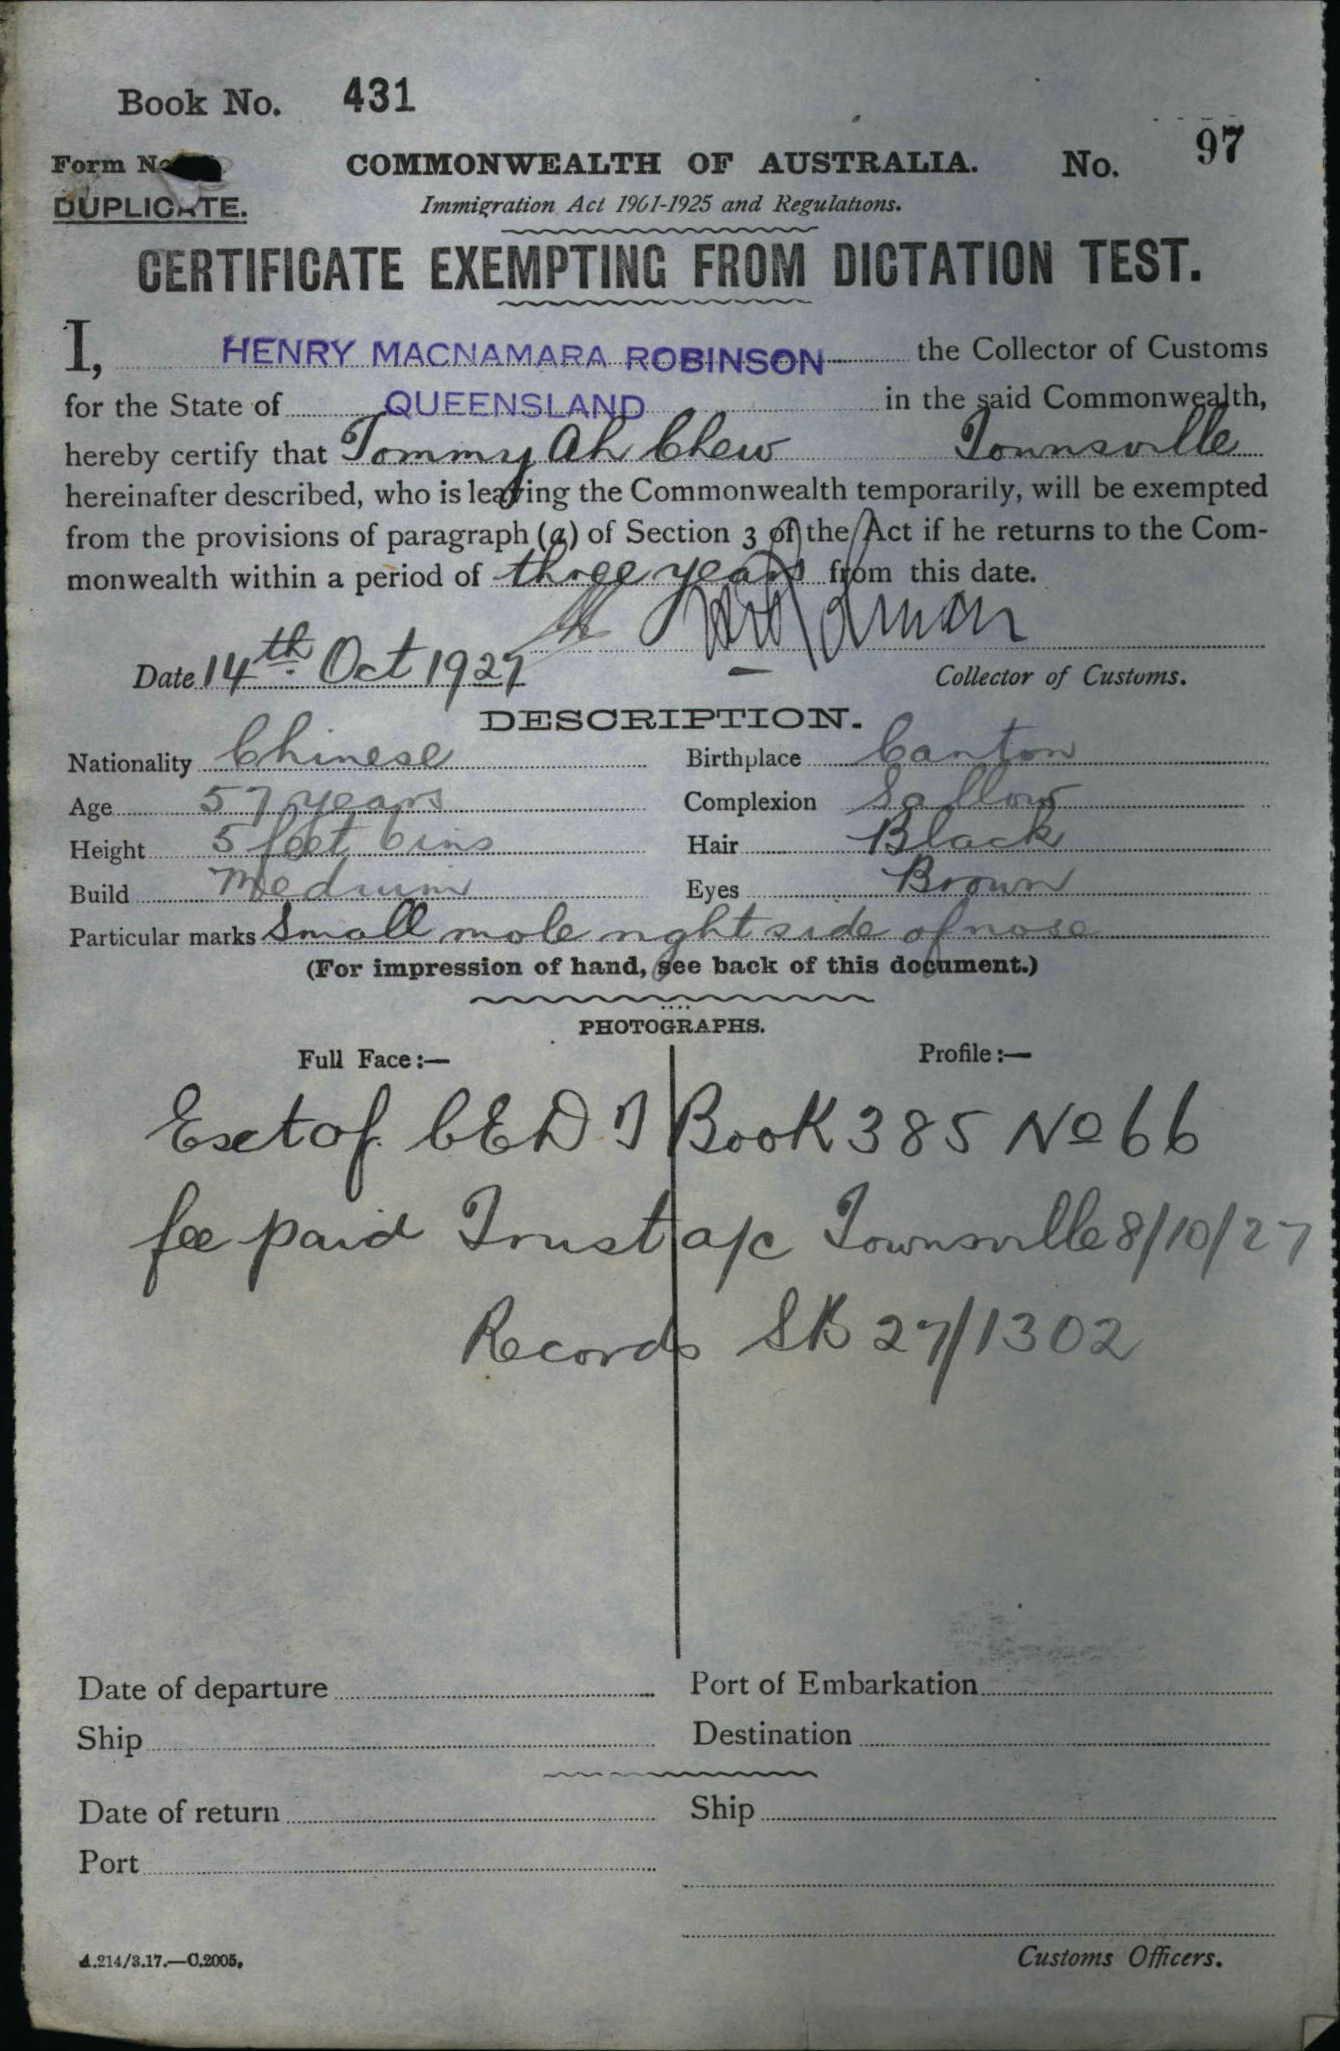 Book No. 431
97
Form No
COMMONWEALTH OF AUSTRALIA. No.
DUPLICATE.
Immigration Act 1901-1925 and Regulations.
CERTIFICATE EXEMPTING FROM DICTATION TEST.
I, HENRY MACNAMARA ROBINSON the Collector of Customs
for the State of QUEENSLAND in the said Commonwealth,
hereby certify that Tommy Ah Chew Townsville
hereinafter described, who is leaving the Commonwealth temporarily, will be exempted
from the provisions of paragraph (a) of Section 3 of the Act if he returns to the Com-
monwealth within a period of three years from this date.
Date 14th Oct 1927
Collector of Customs.
DESCRIPTION.
Nationality Chinese Birthplace Canton
Age 57 years Complexion Sallow
Height 5 feet 6 ins Hair Black
Build Medium Eyes Brown
Particular marks Small mole right side of nose
(For impression of hand, see back of this document.)
PHOTOGRAPHS.
Full Face:— Profile:—
Ext of CEDT Book 385 No 66
fee paid Trust a/c Townsville 8/10/27
Records SB 27/1302
Date of departure Port of Embarkation
Ship Destination
Date of return Ship
Port
A.214/3.17.—C.2005.
Customs Officers.